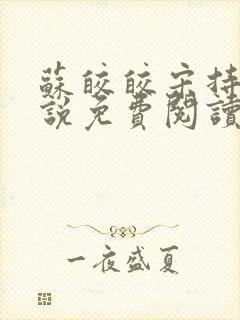 蘇皎皎宋持
說免費閱讀
一夜盛夏